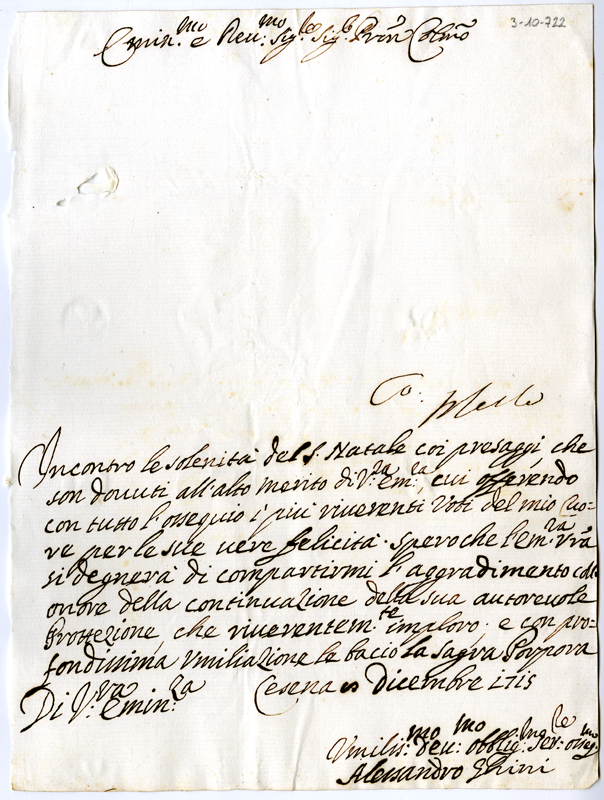 3-10-722
Emin.mo e Reu.mo Sig.re Sig.re Pron Colmo
Incontro le solenità del S. Natale coi presaggi che
son douuti all'alto merito di V.ra Em.za cui offerendo
con tutto l'ossequio i più riuerenti voti del mio cuo-
re per le sue uere felicità. spero che l'em.za vra
si degnerà di compartirmi l'aggradimento coll
onore della continuazione della sua autoreuole
Protezione, che riuerentem.te imploro. e con pro-
fondissima vmiliazione le bacio la Sagra Porpora
Di V.ra Emin.za Cesena Dicembre 1715
Vmilis.mo deu.mo obblig.mo Ser.re osseq.mo
Alessandro Ghini